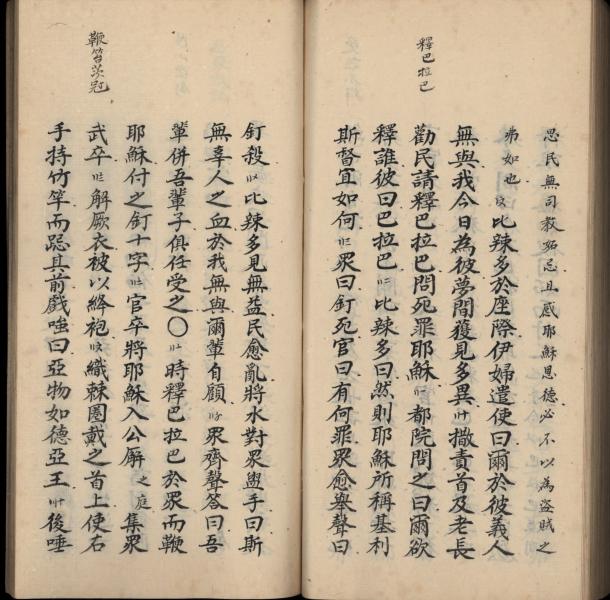 釋巴拉巴
思民無司教妬忌且感耶穌恩德必不以為盜賊之
弗如也比辣多於座際伊婦遣使曰爾於彼義人
無與我今日為彼夢間獲見多異撒責首及老長
勸民請釋巴拉巴問死罪耶穌都院問之曰爾欲
釋誰彼曰巴拉巴比辣多曰然則耶穌所稱基利
斯督宜如何眾曰釘死官曰有何罪眾愈舉聲曰
鞭笞茨冠
釘殺比辣多見無益民愈亂將水對眾盥手曰斯
無辜人之血於我無與爾輩自顧眾齊聲答曰吾
輩併吾輩子俱任受之〇時釋巴拉巴於眾而鞭
耶穌付之釘十字官卒將耶穌入公廨之庭集眾
武卒解厥衣被以絳袍織棘圈戴之首上使右
手持竹竿而跽其前戲嗤曰亞物如德亞王後唾